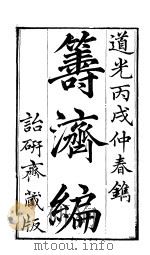 道光丙戌仲春鐫
籌濟編
詒研齋藏版
mtoou.info